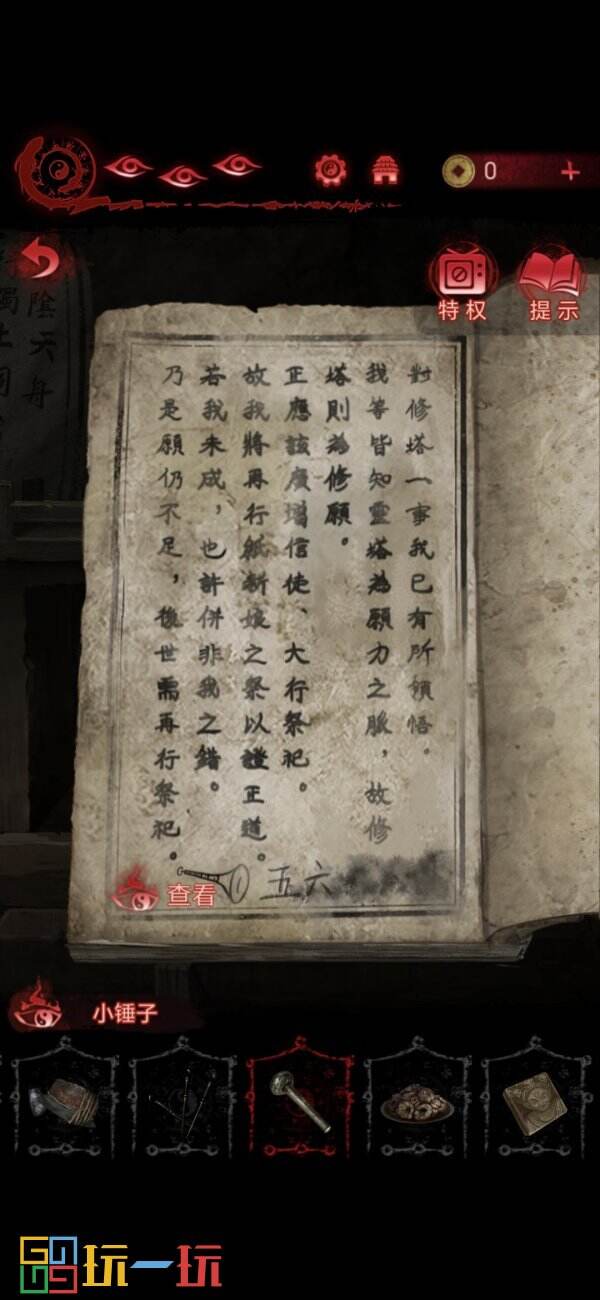 0
特权
提示
對修塔一事我已有所領悟。
我等皆知靈塔為願力之脈，故修
塔則為修願。
正應該廣增信徒、大行祭祀。
故我將再行紙新娘之祭以證正道。
若我未成，也許併非我之錯。
乃是願仍不足，後世需再行祭祀。
查看
五六
小锤子
陰天舟
玩一玩